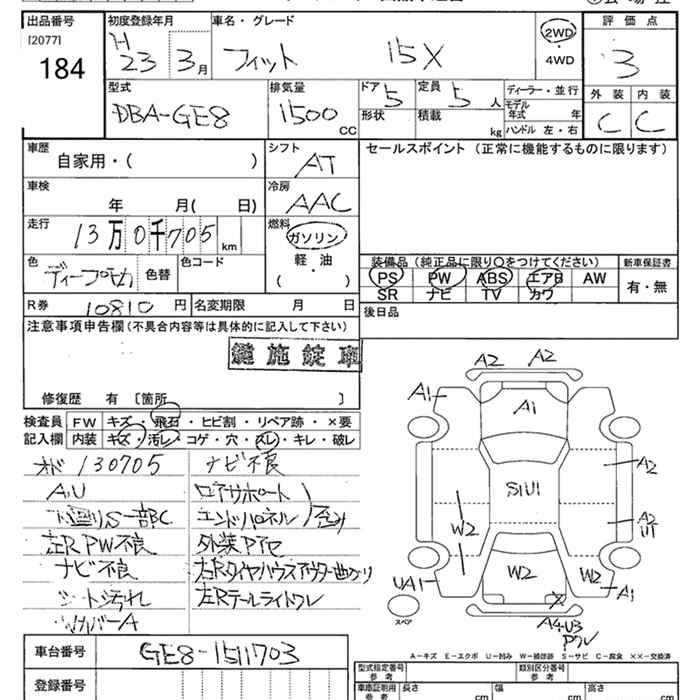 出品番号 初度登録年月 車名・グレード 評価点
[2077]
184
H 23 3月 フィット 15X 2WD ・ 4WD 3
型式 排気量 ドア 定員 ディーラー・並行 外装 内装
DBA-GE8 1500 CC 5 5 人 モデル年式 年 C C
形状 積載 kg ハンドル 左・右
車歴 シフト セールスポイント (正常に機能するものに限ります)
自家用・( ) AT
車検 冷房
年 月( 日) AAC
走行 燃料
13万0千705 km ガソリン
軽・油
( )
色 色替 色コード
装備品(純正品に限り○をつけてください) 新車保証書
PS PW ABS エアB AW 有・無
SR ナビ TV カワ
R券 10810 円 名変期限 月 日 後日品
注意事項申告欄(不具合内容等は具体的に記入して下さい)
鍵施錠車
修復歴 有 〔箇所 〕
検査員 FW キズ・飛石・ヒビ割・リペア跡・×要
記入欄 内装 キズ・汚レ・コゲ・穴・スレ・キレ・破レ
130705 ナビ不良
AU
S一部BC エンドパネル 歪み
左R PW不良
ナビ不良
シート汚れ 左Rテールライトワレ
A
A2 A2
A1 A1
S1U1 A2
W2 A2 U1
UA1 W2 W2 A1
スペア
A4・U3
ワレ
A−キズ E−エクボ U−凹み W−補修跡 S−サビ C−腐食 ××−交換済
車台番号 GE8-1511703
型式指定番号 参考 類別区分番号 参考
登録番号
車庫証明用 参考 長さ cm 幅 cm 高さ cm